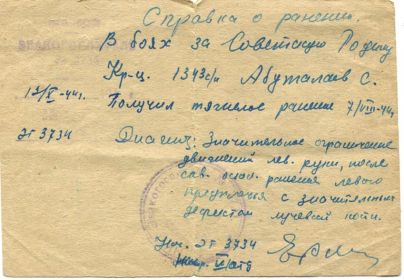 Справка о ранении.
В боях за Советскую Родину
Кр-ц. 1343 с/п Абуталаев С.
13/X-44г. Получил тяжелое ранение 7/VIII-44г
ЭГ 3734 Диагноз: Значительное ограничение
движений лев. руки, после
ранения левого
предплечья с значительным
дефектом лучевой кости.
Нач. ЭГ 3734